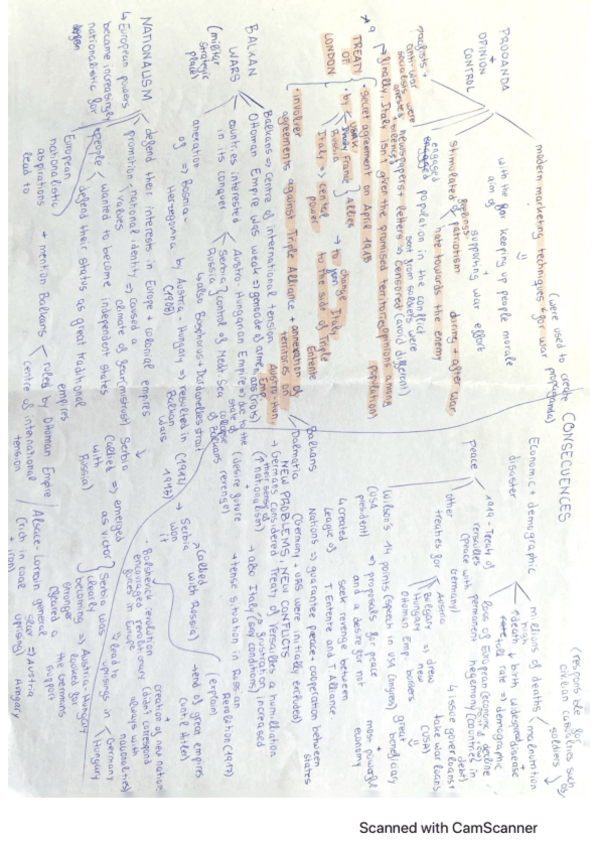 PROGANDA
+
OPINION
CONTROL
modern marketing techniques for war
(were used to create propaganda)
with the aim of
for keeping up people morale
+
supporting war effort
stimulated feelings
patriotism during + after war
hate towards the enemy
engaged population in the conflict
newspapers + letters => censored (avoid different opinions among population)
sent from soldiers were
pacifists +
anti-war
socialists were
arrested
Finally, Italy isn't given the promised territories
TREATY
OF
LONDON
secret agreement on April 1915
by
UK
France
Russia
Allies
Italy => central power
→ to change Italy to join to the side of Triple Entente
involver agreements against Triple Alliance + annexation of territories on Austro-Hun. Emp.
BALKAN
WARS
(milktar strategic place)
Balkans => Centre of international tension
Ottoman Empire was weak
countries interested in its conquer
Austro-Hungarian Empire
Serbia
Russia
control of Medit Sea
↳ also Bosphorus-Dardanelles strait
annexation of => Bosnia-Herzegovina by Austria-Hungary => resulted in Balkan Wars
(1908)
(1912)
1913
→ Serbia won it
NATIONALISM
↳ European powers became increasingly nationalistic for
defend their interests in Europe + colonial empires
promotion national identity => caused a climate of fear (mistrust)
values
people
wanted to become independent states
defend their status as great traditional empires
European nationalistic aspirations lead to
→ mention Balkans
ruled by Ottoman Empire
centre of international tension
Serbia
(allied with Russia)
=> emerged as victor
Serbia was clearly becoming stronger
=> Austria-Hungary looked for the Germans support
Alsace-Lorrain
(rich in coal + iron)
general
uprising)
=> Austria
Hungary
CONSECUENCES
Economic + demographic disaster
millions of deaths
malnutrition
soldiers
(responsible for civilian casualties such as)
↑ death
↓ birth rate
widespread disease
high
=> demographic decline
loss of European hegemony
peace
1919 - Treaty of Versailles
(peace with Germany)
other treaties for
Austria
Hungary
Bulgary
Ottoman Emp
=> drew new borders
↳ issue gover loans + take war loans
(USA)
great beneficiary
most powerful economy
Wilson's 14 points (speech in USA Congress)
(USA president)
=> proposals for peace and a desire for not seek revenge between T. Entente and T. Alliance
↳ created League of Nations => guarantee peace + cooperation between states
(Germany + URSS were initially excluded)
NEW PROBLEMS, NEW CONFLICTS
→ Germans considered Treaty of Versailles a humiliation
(↑ nationalism)
(desire future revenge)
→ also Italy
=> frustration increased
→ tense situation in Russian Revolution (1917)
(explain)
→ end of great empires
(until Hitler)
+
creation of new nation
(didn't correspond always with nationalities)
Bolshevick revolution encouraged revolutionary fires in Europe
lead to
uprisings in
Germany
Hungary
Balkans
Dalmatia
(allied with Russia)
Scanned with CamScanner